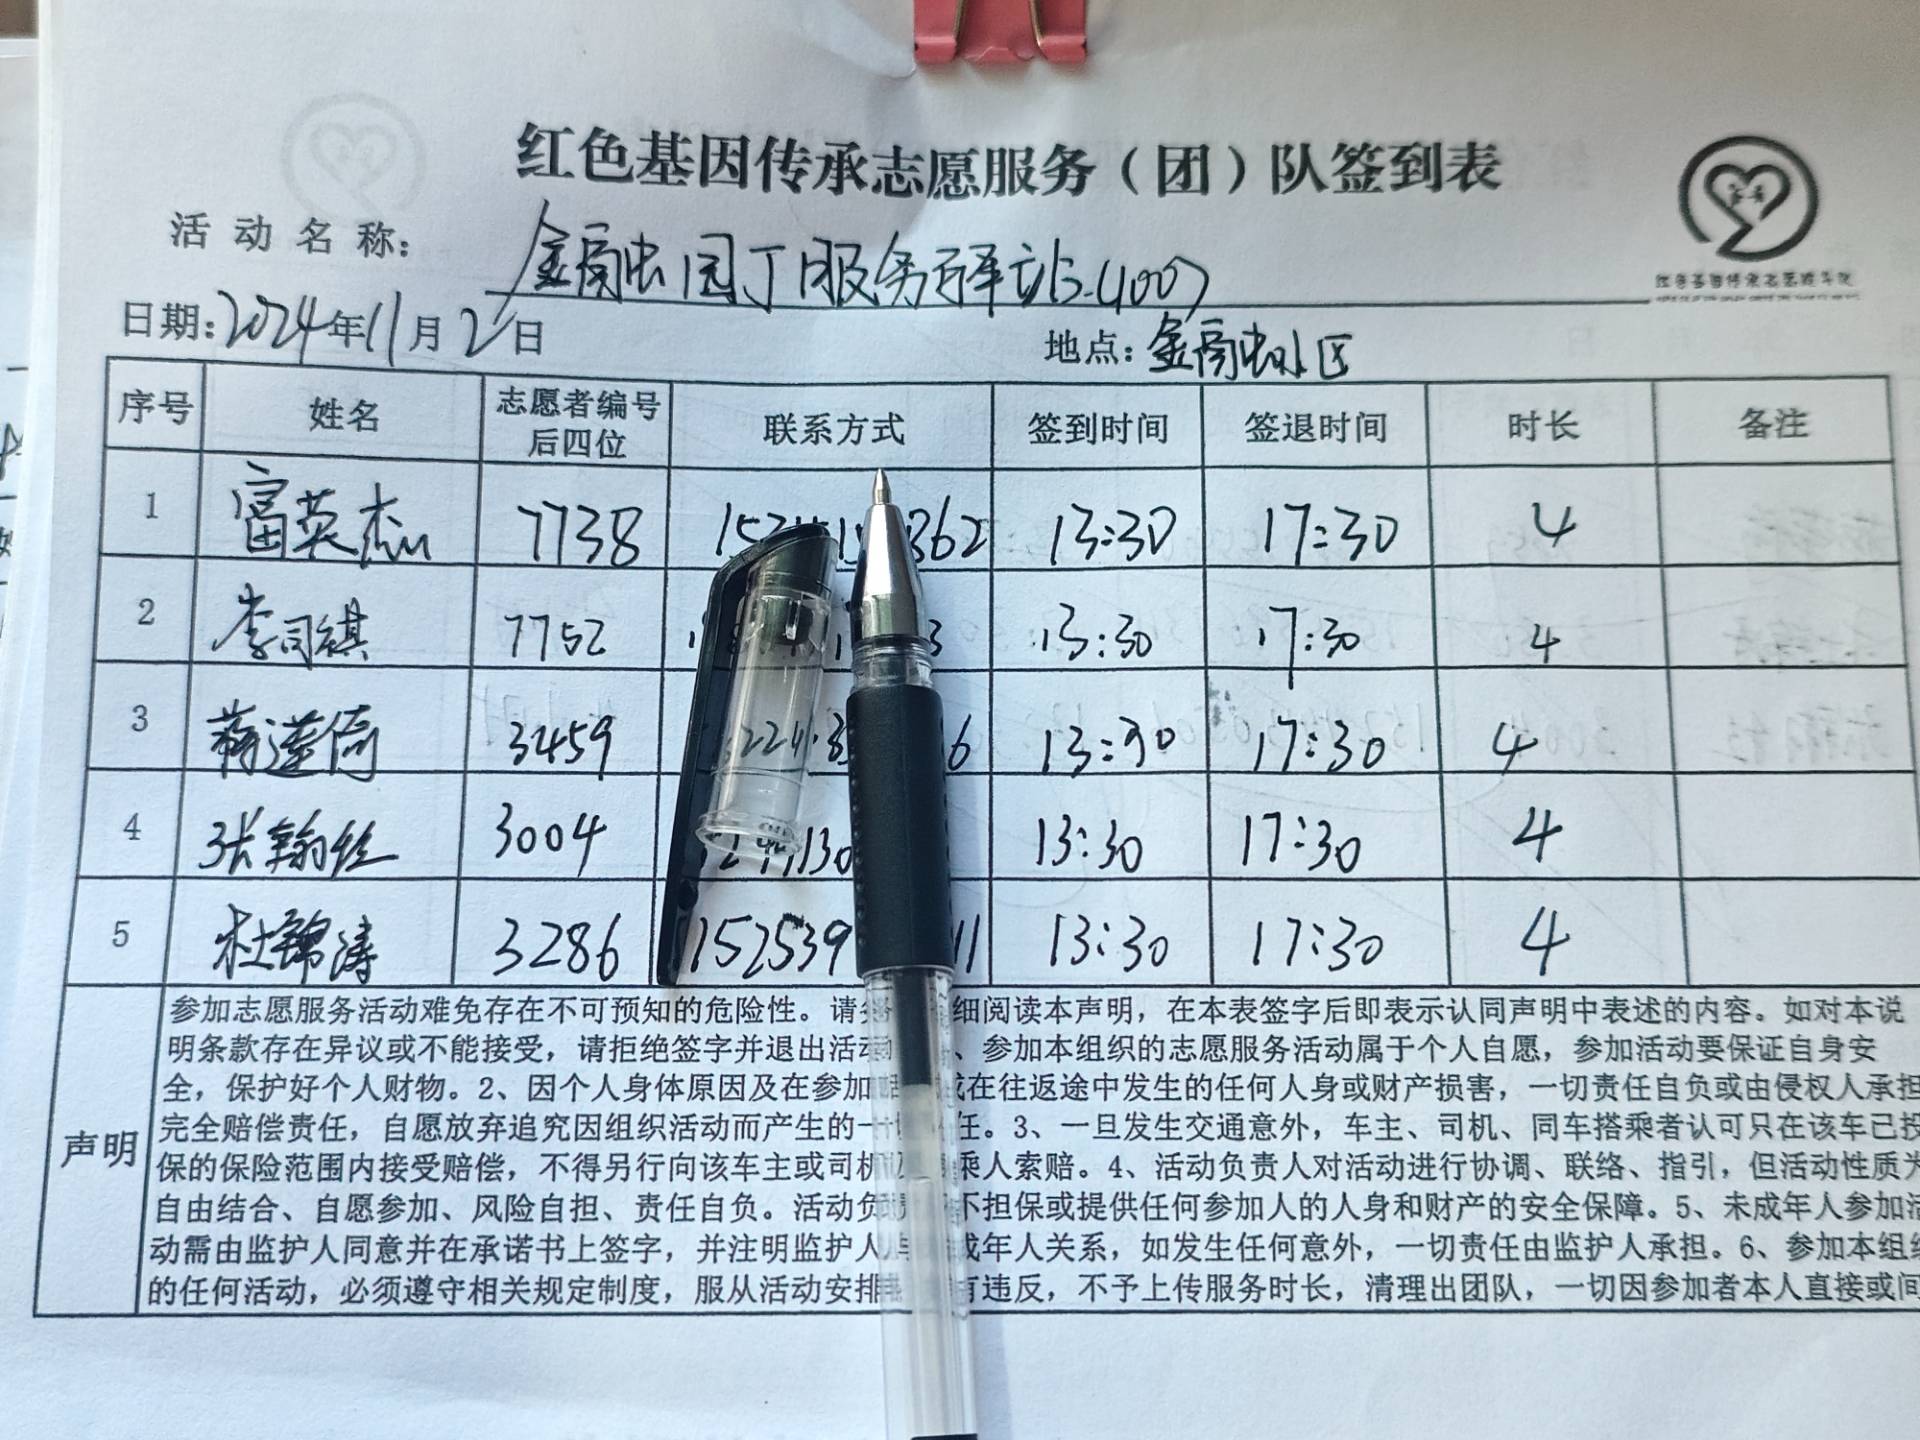 红色基因传承志愿服务（团）队签到表
活动名称：园丁服务驿站
日期：2024年11月2日 地点：小区
序号 姓名 志愿者编号后四位 联系方式 签到时间 签退时间 时长 备注
1 富英杰 7738 362 13:30 17:30 4
2 李司祺 7752 3 13:30 17:30 4
3 蒋莲倚 3459 6 13:30 17:30 4
4 张翰丝 3004 130 13:30 17:30 4
5 杜锦涛 3286 152539 11 13:30 17:30 4
声明
参加志愿服务活动难免存在不可预知的危险性。请 细阅读本声明，在本表签字后即表示认同声明中表述的内容。如对本说
明条款存在异议或不能接受，请拒绝签字并退出活动 、参加本组织的志愿服务活动属于个人自愿，参加活动要保证自身安
全，保护好个人财物。2、因个人身体原因及在参加 在往返途中发生的任何人身或财产损害，一切责任自负或由侵权人承担
完全赔偿责任，自愿放弃追究因组织活动而产生的一 任。3、一旦发生交通意外，车主、司机、同车搭乘者认可只在该车已投
保的保险范围内接受赔偿，不得另行向该车主或司机 乘人索赔。4、活动负责人对活动进行协调、联络、指引，但活动性质为
自由结合、自愿参加、风险自担、责任自负。活动负 不担保或提供任何参加人的人身和财产的安全保障。5、未成年人参加活
动需由监护人同意并在承诺书上签字，并注明监护人 成年人关系，如发生任何意外，一切责任由监护人承担。6、参加本组织
的任何活动，必须遵守相关规定制度，服从活动安排 有违反，不予上传服务时长，清理出团队，一切因参加者本人直接或间